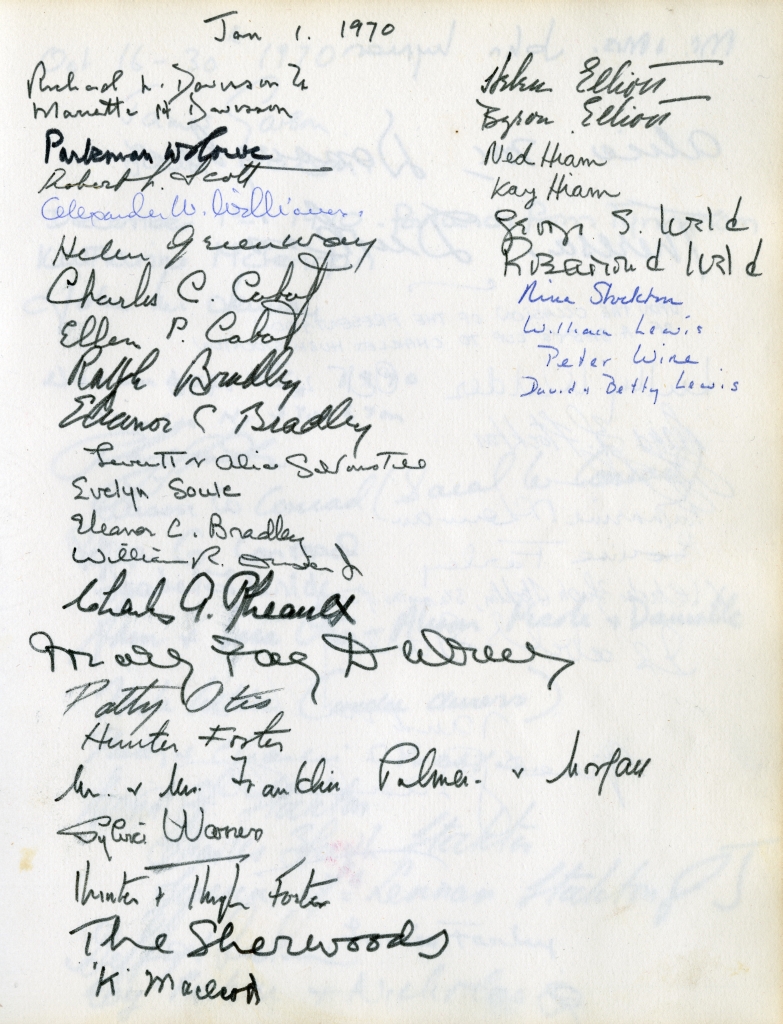 Jan 1. 1970
Richard L. Davisson Jr
Mariette H Davisson
Parkman Howe
Robert L. Scott
Alexander W. Williams
Helen Greenway
Charles C Cabot
Ellen P Cabot
Ralph Bradley
Eleanor C Bradley
Leverett + Alice Saltonstall
Evelyn Soule
Eleanor C. Bradley
William R.
Charles A. Rheault
Mary Fay
Patty Otis
Hunter Foster
Mr. + Mrs. Franklin Palmer. + Morgan
Sylvia Warren
Hunter + Hugh Foster
The Sherwoods
"K" Macleod
Helen Elliott
Byron Elliott
Ned Hiam
Kay Hiam
George S. Weld
Rosamond Weld
Nina Stockton
William Lewis
Peter Wine
David + Betty Lewis